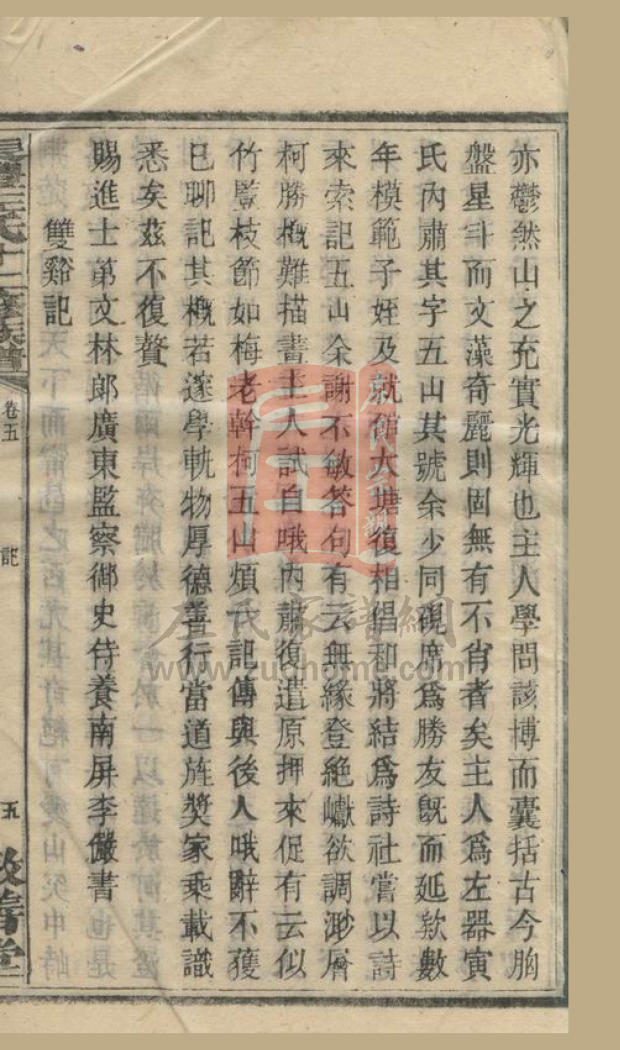 亦鬱然山之充實光輝也主人學問該博而囊括古今胸
盤星斗而文藻奇麗則固無有不肖者矣主人為左器寅
氏內肅其字五山其號余少同硯席為勝友旣而延欵數
年模範子姪及就館大塘復相倡和將結為詩社嘗以詩
來索記五山余謝不敏答句有云無緣登絕巘欲調渺層
柯勝槪難描畫主人試自哦內肅復遣原押來促有云似
竹䜿枝節如梅老幹柯五山煩一記傳與後人哦辭不獲
已聊記其槪若邃學軌物厚德善行當道旌奬家乘載識
悉矣茲不復贅
賜進士第文林郎廣東監察御史侍養南屏李儼書
雙谿記
十二修族譜
卷五
記
五
敘善堂
左氏家譜網
www.zuohome.com